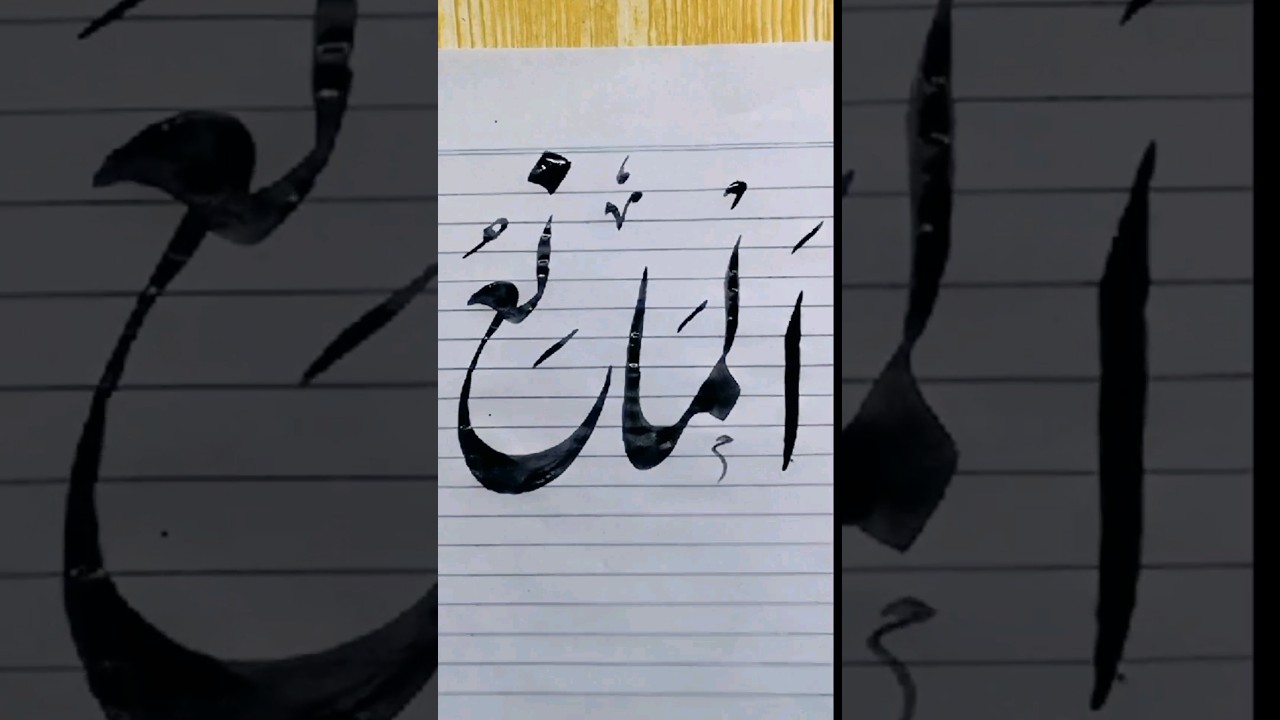 اَلْمَانِعُ